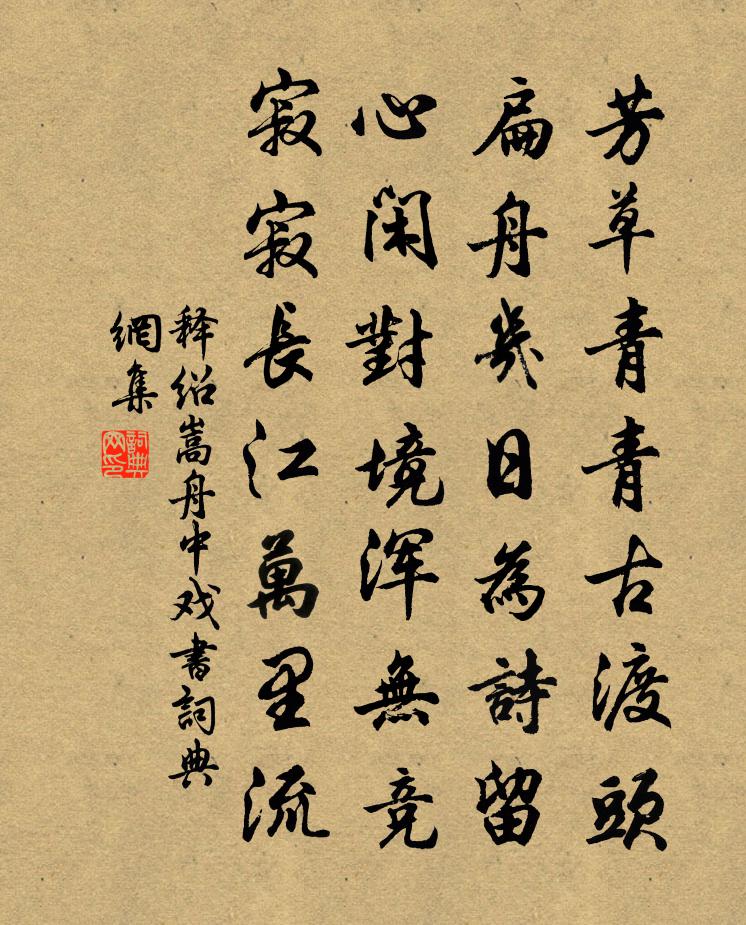 芳草青青古渡頭
扁舟幾日為詩留
心閑對境渾無竞
寂寂長江萬里流
释绍嵩舟中戏書詞典
網集
詞典
网印